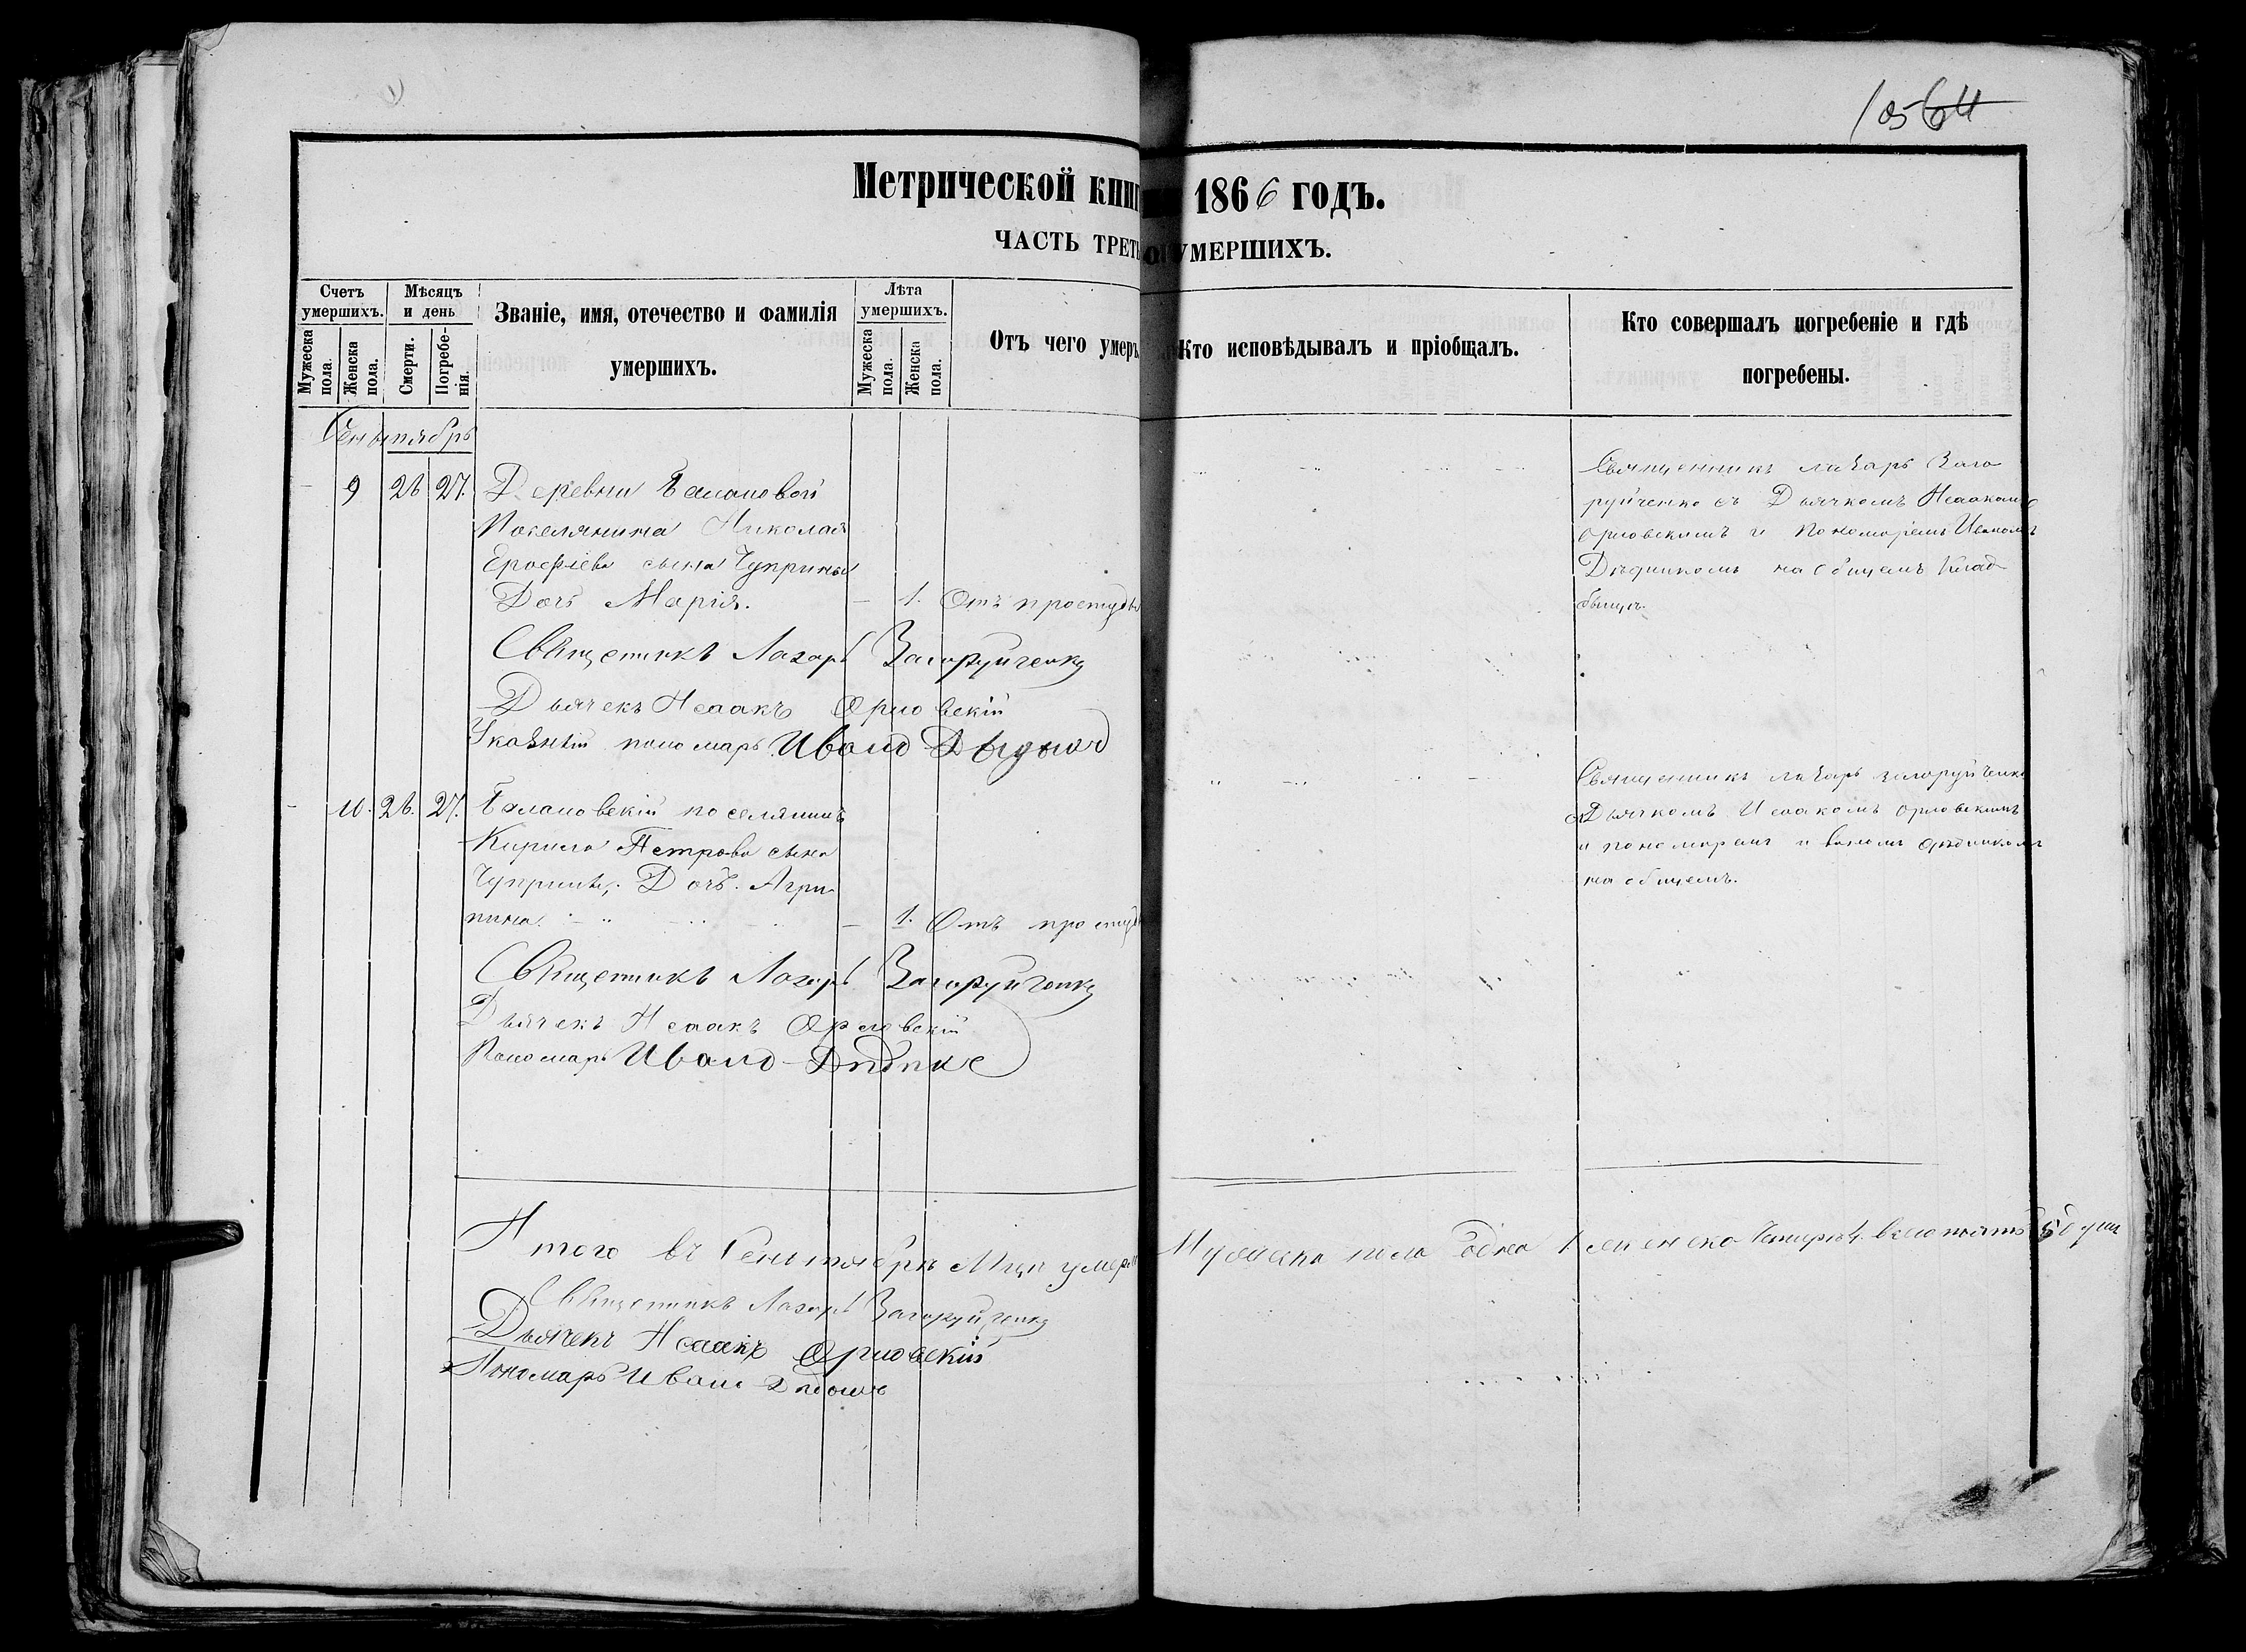 Метрической книг 1866 годъ.
ЧАСТЬ ТРЕТЬ О УМЕРШИХЪ.
Счетъ умершихъ.
Мужеска пола.
Женска пола.
Мѣсяцъ и день
Смерти.
Погребенія.
Званіе, имя, отечество и фамилія
умершихъ.
Лѣта умершихъ.
Мужеска пола.
Женска пола.
Отъ чего умеръ
Кто исповѣдывалъ и пріобщалъ.
Кто совершалъ погребеніе и гдѣ
погребены.
Сентябрь
9 26 27. Деревни Балановой
Поселянина Николая
Ерофѣева сына Чуприны
Дочь Марія. — 1. Отъ простуды
Священникъ Лазарь Загоруйченко
Дьячекъ Исаакъ Орловскій
пономарь Иванъ
Священникъ Лазарь Заго
руйченко съ Дьячкомъ Исаакомъ
Орловскимъ и Пономаремъ Иваномъ
на общемъ клад
бищѣ.
10. 26. 27. Балановскій поселянинъ
Кирила Петрова сына
Чуприны, Дочь Агри-
пина. — 1. Отъ простуд
Священникъ Лазарь Загоруйченко
Дьячекъ Исаакъ Орловскій
Пономарь Иванъ
Священникъ Лазарь Загоруйченко
съ Дьячкомъ Исаакомъ Орловскимъ
и пономаремъ Иваномъ
на общемъ.
Итого въ Сентябрѣ Мцѣ умерло Мужеска пола одна 1 женска четыре 4 всего пять 5 душ
Священникъ Лазарь Загоруйченко
Дьячекъ Исаакъ Орловскій
Пономарь Иванъ